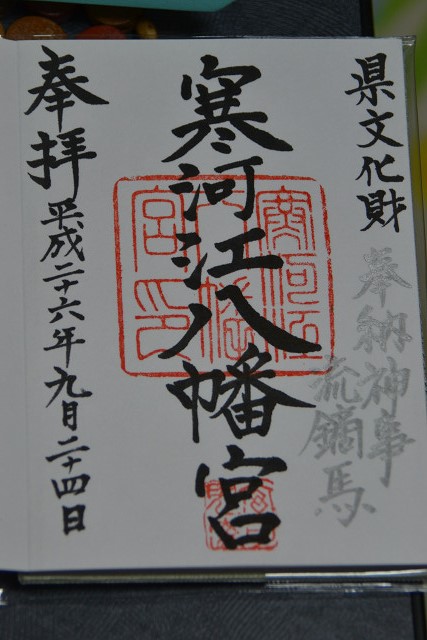 県文化財
奉納神事
流鏑馬
寒河江八幡宮
寒河江八幡宮印
奉拝
平成二十六年九月二十四日